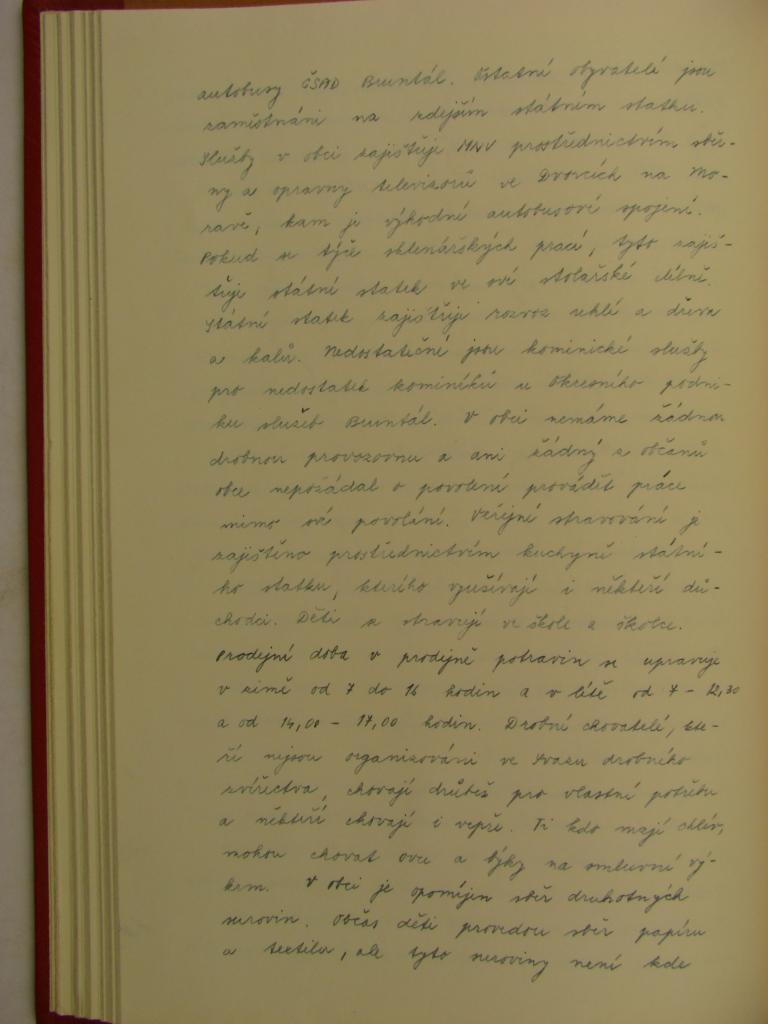 autobusy ČSAD Bruntál. Ostatní obyvatelé jsou
zaměstnáni na zdejším státním statku.
Služby v obci zajišťuje MNV prostřednictvím sběr-
ny a opravny televizorů ve Dvorcích na Mo-
ravě, kam je výhodné autobusové spojení.
Pokud se týče sklenářských prací, tyto zajiš-
ťuje státní statek ve své stolařské dílně.
Státní statek zajišťuje rozvoz uhlí a dřeva
a kalů. Nedostatečné jsou kominické služby
pro nedostatek kominíků u Okresního podni-
ku služeb Bruntál. V obci nemáme žádnou
drobnou provozovnu a ani žádný z občanů
obce nepožádal o povolení provádět práce
mimo své povolání. Veřejné stravování je
zajištěno prostřednictvím kuchyně státní-
ho statku, kterého využívají i někteří dů-
chodci. Děti se stravují ve škole a školce.
Prodejní doba v prodejně potravin se upravuje
v zimě od 7 do 16 hodin a v létě od 7 - 12,30
a od 14,00 - 17,00 hodin. Drobní chovatelé, kte-
ří nejsou organizováni ve Svazu drobného
zvířectva, chovají drůbež pro vlastní potřebu
a někteří chovají i vepře. Ti kdo mají chlév,
mohou chovat ovce a býky na smluvní vý-
krm. V obci je opomíjen sběr druhotných
surovin. Občas děti provedou sběr papíru
a textilu, ale tyto suroviny není kde